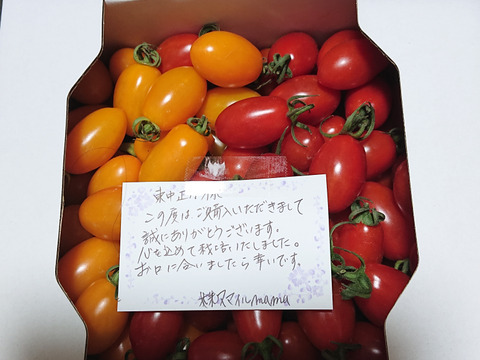 この度は、ご購入いただきまして
誠にありがとうございます。
心を込めて栽培いたしました。
お口に合いましたら幸いです。
スマイルmama